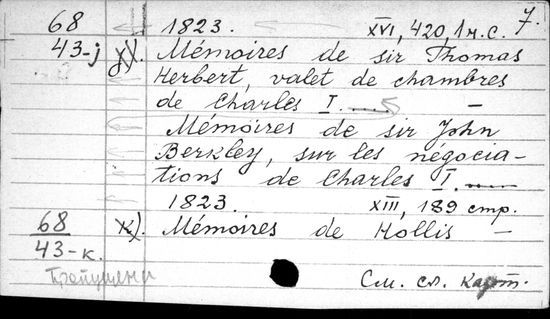 68 1823. XVI, 420, 1 н.с. 7.
43-j XX). Mémoires de sir Thomas
Herbert, valet de chambres
de Charles I. —
Mémoires de sir John
Berkley, sur les négocia-
tions de Charles I.
1823. XIII, 189 стр.
68 к). Mémoires de Hollis —
43-к.
Пропущени См. сл. карт.